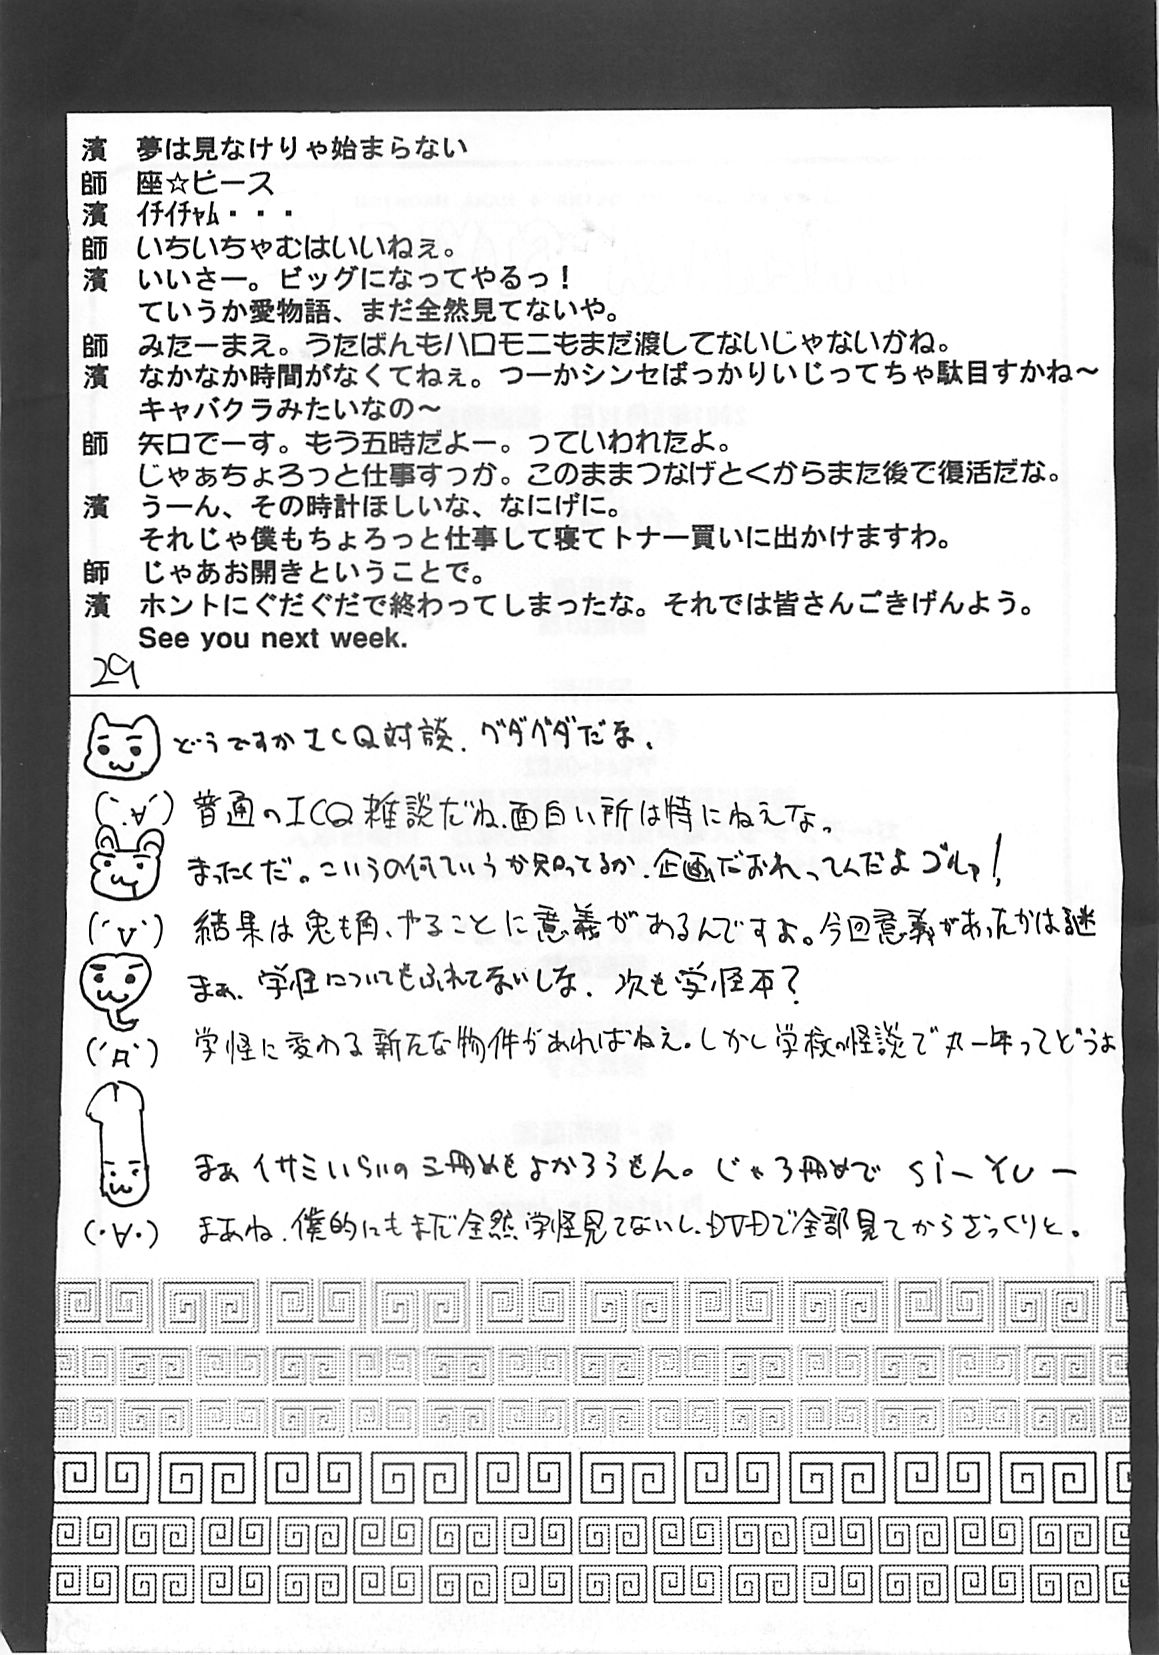 濱 夢は見なけりゃ始まらない
師 座☆ピース
濱 ｲﾁｲﾁｬﾑ・・・
師 いちいちゃむはいいねぇ。
濱 いいさー。ビッグになってやるっ！
ていうか愛物語、まだ全然見てないや。
師 みたーまえ。うたばんもハロモニもまだ渡してないじゃないかね。
濱 なかなか時間がなくてねぇ。つーかシンセばっかりいじってちゃ駄目すかね～
キャバクラみたいなの～
師 矢口でーす。もう五時だよー。っていわれたよ。
じゃぁちょろっと仕事すっか。このままつなげとくからまた後で復活だな。
濱 うーん、その時計ほしいな、なにげに。
それじゃ僕もちょろっと仕事して寝てトナー買いに出かけますわ。
師 じゃあお開きということで。
濱 ホントにぐだぐだで終わってしまったな。それでは皆さんごきげんよう。
See you next week.
29
どうですかICQ対談、グダグダだな、
(´∀`) 普通のICQ雑談だね、面白い所は特にねえな。
まったくだ。こういうの何ていうか知ってるか、企画だおれってんだよゴルァ！
(´∀`) 結果は兎も角、やることに意義があるんですよ。今回意義があったかは謎
まぁ、学怪についてもふれてないしな、次も学怪本？
(´Д`) 学怪に変わる新たな物件があればねえ。しかし学校の怪談で丸一年ってどうよ
まぁイサミいらいの三冊めもよかろうもん。じゃ3冊めで si-yu-
(・∀・) まあね、僕的にもまだ全然学怪見てないし、DVDで全部見てからざっくりと。